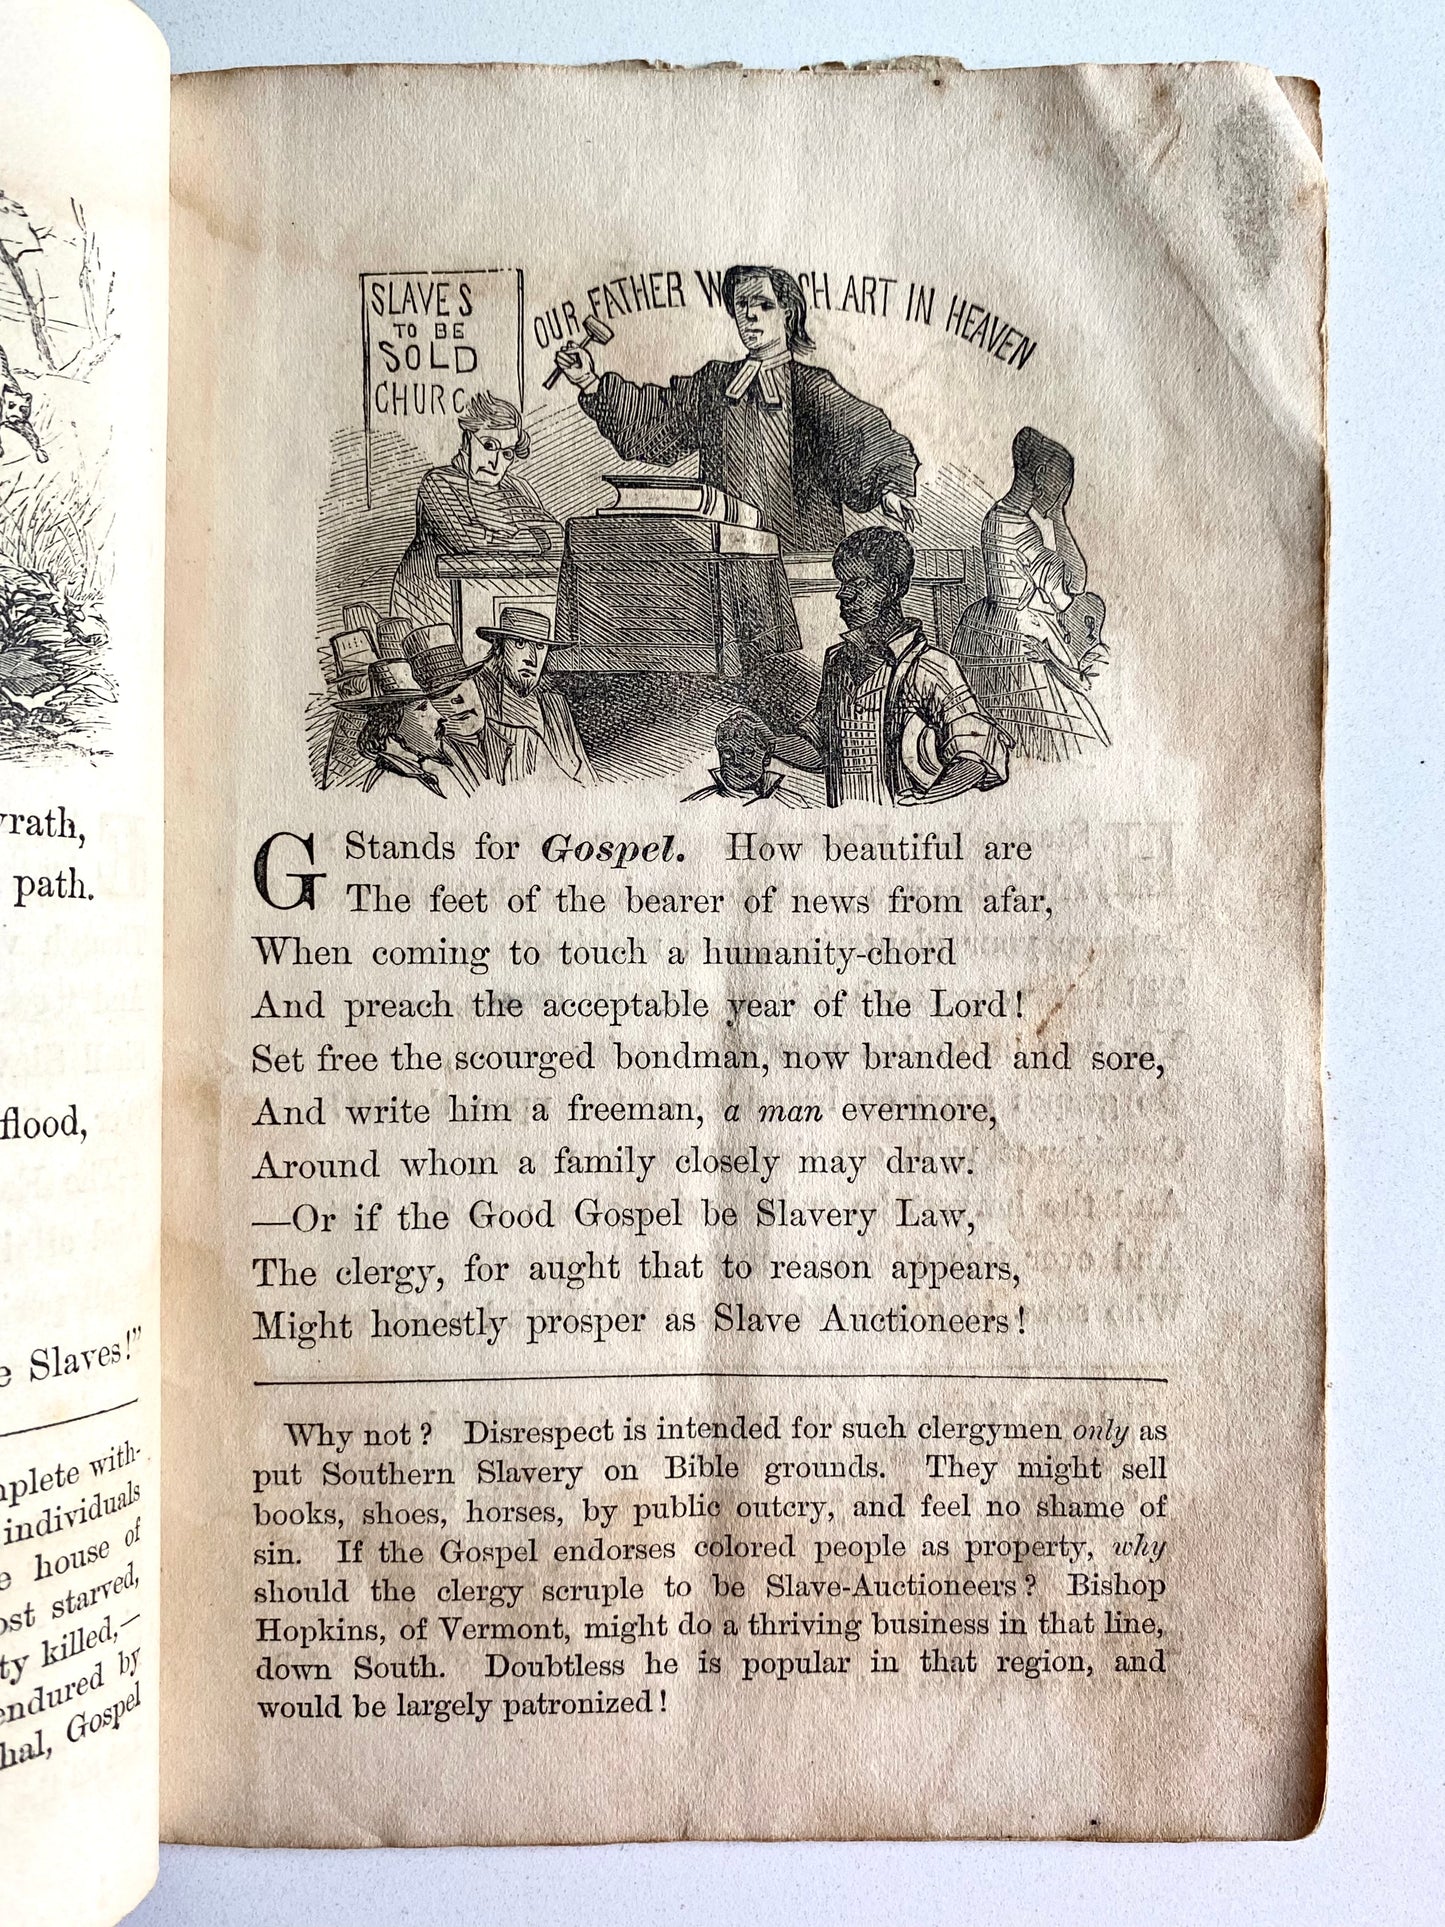 SLAVES
TO BE
SOLD
CHURC
OUR FATHER W CH ART IN HEAVEN
G Stands for Gospel. How beautiful are
The feet of the bearer of news from afar,
When coming to touch a humanity-chord
And preach the acceptable year of the Lord!
Set free the scourged bondman, now branded and sore,
And write him a freeman, a man evermore,
Around whom a family closely may draw.
—Or if the Good Gospel be Slavery Law,
The clergy, for aught that to reason appears,
Might honestly prosper as Slave Auctioneers!
Why not? Disrespect is intended for such clergymen only as
put Southern Slavery on Bible grounds. They might sell
books, shoes, horses, by public outcry, and feel no shame of
sin. If the Gospel endorses colored people as property, why
should the clergy scruple to be Slave-Auctioneers? Bishop
Hopkins, of Vermont, might do a thriving business in that line,
down South. Doubtless he is popular in that region, and
would be largely patronized!
path.
flood,
Slaves!"
with-
individuals
house of
starved,
killed,—
endured by
Gospel